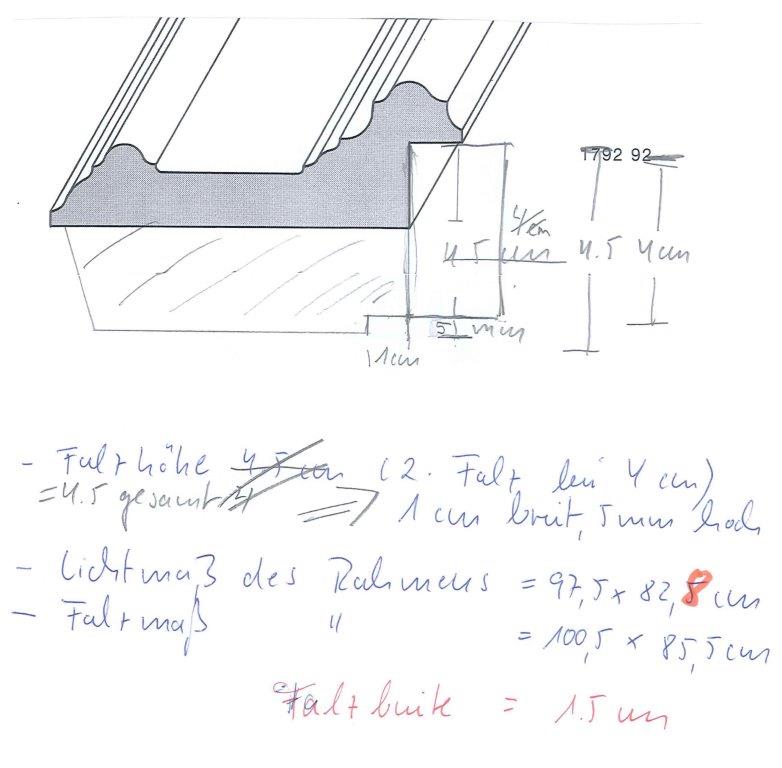 1792 92
4 cm
4.5 cm 4.5 4cm
5 mm
1 cm
- Falzhöhe 4.5 cm (2. Falz bei 4 cm)
= 4.5 gesamt ⇒ 1 cm breit, 5mm hoch
- Lichtmaß des Rahmens = 97,5 x 82,8 cm
- Falzmaß " = 100,5 x 85,5cm
Falzbreite = 1.5 cm